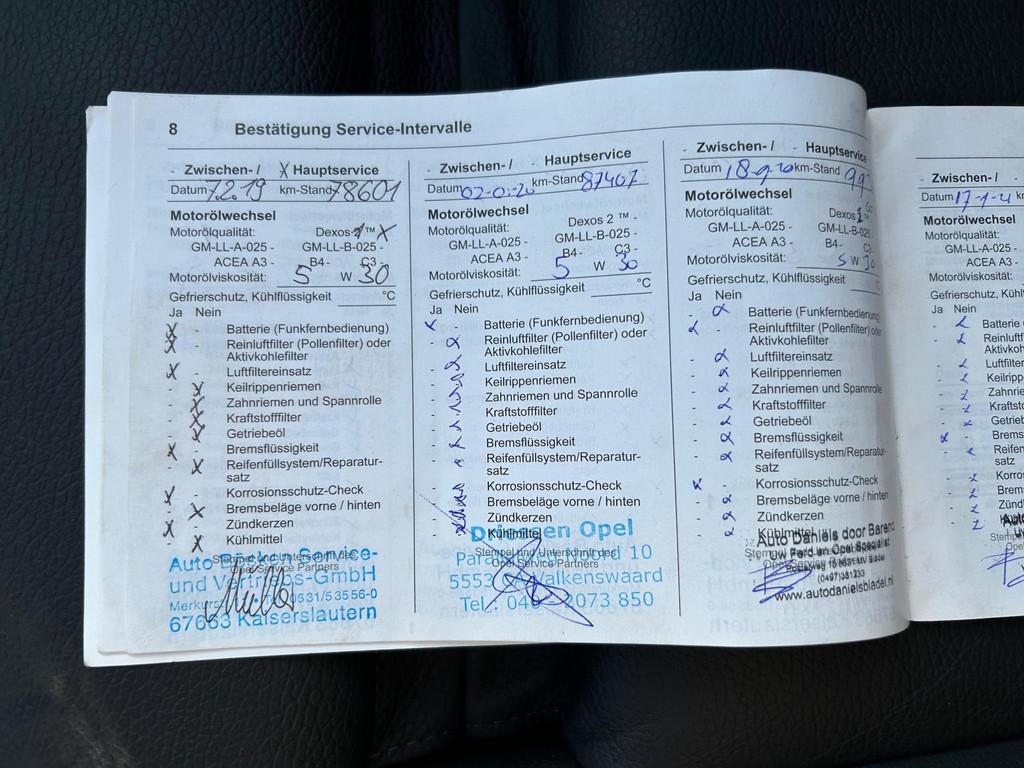 8 Bestätigung Service-Intervalle
- Zwischen- / X Hauptservice
Datum 7.2.19 km-Stand 78601
Motorölwechsel
Motorölqualität: Dexos 2 ™ X
GM-LL-A-025 - GM-LL-B-025 -
ACEA A3 - B4- C3 -
Motorölviskosität: 5 W 30
Gefrierschutz, Kühlflüssigkeit °C
Ja Nein
X - Batterie (Funkfernbedienung)
X - Reinluftfilter (Pollenfilter) oder
Aktivkohlefilter
X - Luftfiltereinsatz
- X Keilrippenriemen
- X Zahnriemen und Spannrolle
- X Kraftstofffilter
- X Getriebeöl
X - Bremsflüssigkeit
- X Reifenfüllsystem/Reparatur-
satz
X - Korrosionsschutz-Check
- X Bremsbeläge vorne / hinten
X - Zündkerzen
- X Kühlmittel
Stempel und Unterschrift des
Opel Service Partners
Auto Service-
und Vertriebs-GmbH
0631/53556-0
67663 Kaiserslautern
- Zwischen- / - Hauptservice
Datum km-Stand 87407
Motorölwechsel
Motorölqualität: Dexos 2 ™ -
GM-LL-A-025 - GM-LL-B-025 -
ACEA A3 - B4- C3 -
Motorölviskosität: 5 W 30
Gefrierschutz, Kühlflüssigkeit °C
Ja Nein
Batterie (Funkfernbedienung)
Reinluftfilter (Pollenfilter) oder
Aktivkohlefilter
Luftfiltereinsatz
Keilrippenriemen
Zahnriemen und Spannrolle
Kraftstofffilter
Getriebeöl
Bremsflüssigkeit
Reifenfüllsystem/Reparatur-
satz
Korrosionsschutz-Check
Bremsbeläge vorne / hinten
Zündkerzen
Kühlmittel
Driessen Opel
Stempel und Unterschrift des
Opel Service Partners
10
5553 Valkenswaard
Tel.: 040 2073 850
- Zwischen- / - Hauptservice
Datum km-Stand
Motorölwechsel
Motorölqualität: Dexos
GM-LL-A-025 - GM-LL-B-025 -
ACEA A3 - B4-
Motorölviskosität: 5 W 30
Gefrierschutz, Kühlflüssigkeit °C
Ja Nein
Batterie (Funkfernbedienung)
Reinluftfilter (Pollenfilter) oder
Aktivkohlefilter
Luftfiltereinsatz
Keilrippenriemen
Zahnriemen und Spannrolle
Kraftstofffilter
Getriebeöl
Bremsflüssigkeit
Reifenfüllsystem/Reparatur-
satz
Korrosionsschutz-Check
Bremsbeläge vorne / hinten
Zündkerzen
Kühlmittel
Auto Daniëls door Barend
Uw Ford en Opel Specialist
www.autodanielsbladel.nl
- Zwischen- / -
Datum km
Motorölwechsel
Motorölqualität:
GM-LL-A-025 -
ACEA A3 -
Motorölviskosität:
Gefrierschutz, Kühlfl
Ja Nein
Batterie
Reinluft
Aktivkoh
Luftfilter
Keilripp
Zahnrie
Kraftsto
Getrieb
Brems
Reifen
satz
Korros
Brems
Zündk